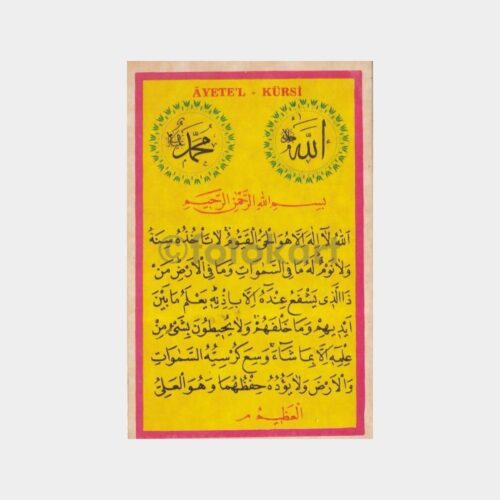 ÂYETE'L - KÜRSİ
الله
محمد
بسم الله الرحمن الرحيم
اَللّٰهُ لَٓا اِلٰهَ اِلَّا هُوَ اَلْحَىُّ الْقَيُّومُ لَا تَأْخُذُهُ سِنَةٌ
وَلَا نَوْمٌ لَهُ مَا فِى السَّمٰوَاتِ وَمَا فِى الْاَرْضِ مَنْ
ذَا الَّذِى يَشْفَعُ عِنْدَهُٓ اِلَّا بِاِذْنِهِ يَعْلَمُ مَا بَيْنَ
اَيْدِيهِمْ وَمَا خَلْفَهُمْ وَلَا يُحِيطُونَ بِشَىْءٍ مِنْ
عِلْمِهِٓ اِلَّا بِمَا شَٓاءَ وَسِعَ كُرْسِيُّهُ السَّمٰوَاتِ
وَالْاَرْضَ وَلَا يَؤُدُهُ حِفْظُهُمَا وَهُوَ الْعَلِىُّ
الْعَظِيمُ م
©fotokart